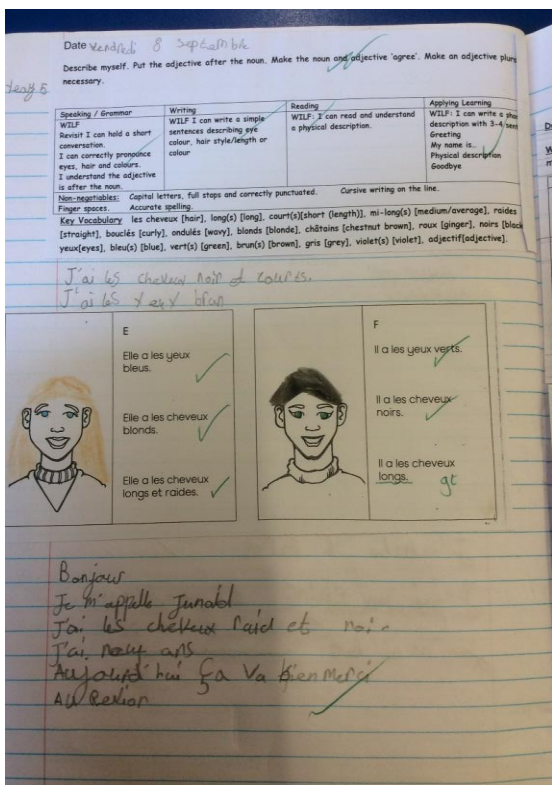 Date Vendredi 8 Septembre
Describe myself. Put the adjective after the noun. Make the noun and adjective 'agree'. Make an adjective plur
necessary.
Speaking / Grammar
WILF
Revisit I can hold a short
conversation.
I can correctly pronounce
eyes, hair and colours.
I understand the adjective
is after the noun.
Writing
WILF I can write a simple
sentences describing eye
colour, hair style/length or
colour
Reading
WILF: I can read and understand
a physical description.
Applying Learning
WILF: I can write a shor
description with 3-4 sent
Greeting
My name is..
Physical description
Goodbye
Non-negotiables: Capital letters, full stops and correctly punctuated. Cursive writing on the line.
Finger spaces. Accurate spelling.
Key Vocabulary les cheveux [hair], long(s) [long], court(s)[short (length)], mi-long(s) [medium/average], raides
[straight], bouclés [curly], ondulés [wavy], blonds [blonde], châtains [chestnut brown], roux [ginger], noirs [black
yeux[eyes], bleu(s) [blue], vert(s) [green], brun(s) [brown], gris [grey], violet(s) [violet], adjectif[adjective].
J'ai les cheveux noir et courts.
J'ai les yeux brun
E
Elle a les yeux
bleus.
Elle a les cheveux
blonds.
Elle a les cheveux
longs et raides.
F
Il a les yeux verts.
Il a les cheveux
noirs.
Il a les cheveux
longs. gt
Bonjour
Je m'appelle Junaid
J'ai les cheveux raid et noir
J'ai neuf ans
Aujourd'hui ça va bien merci
Au